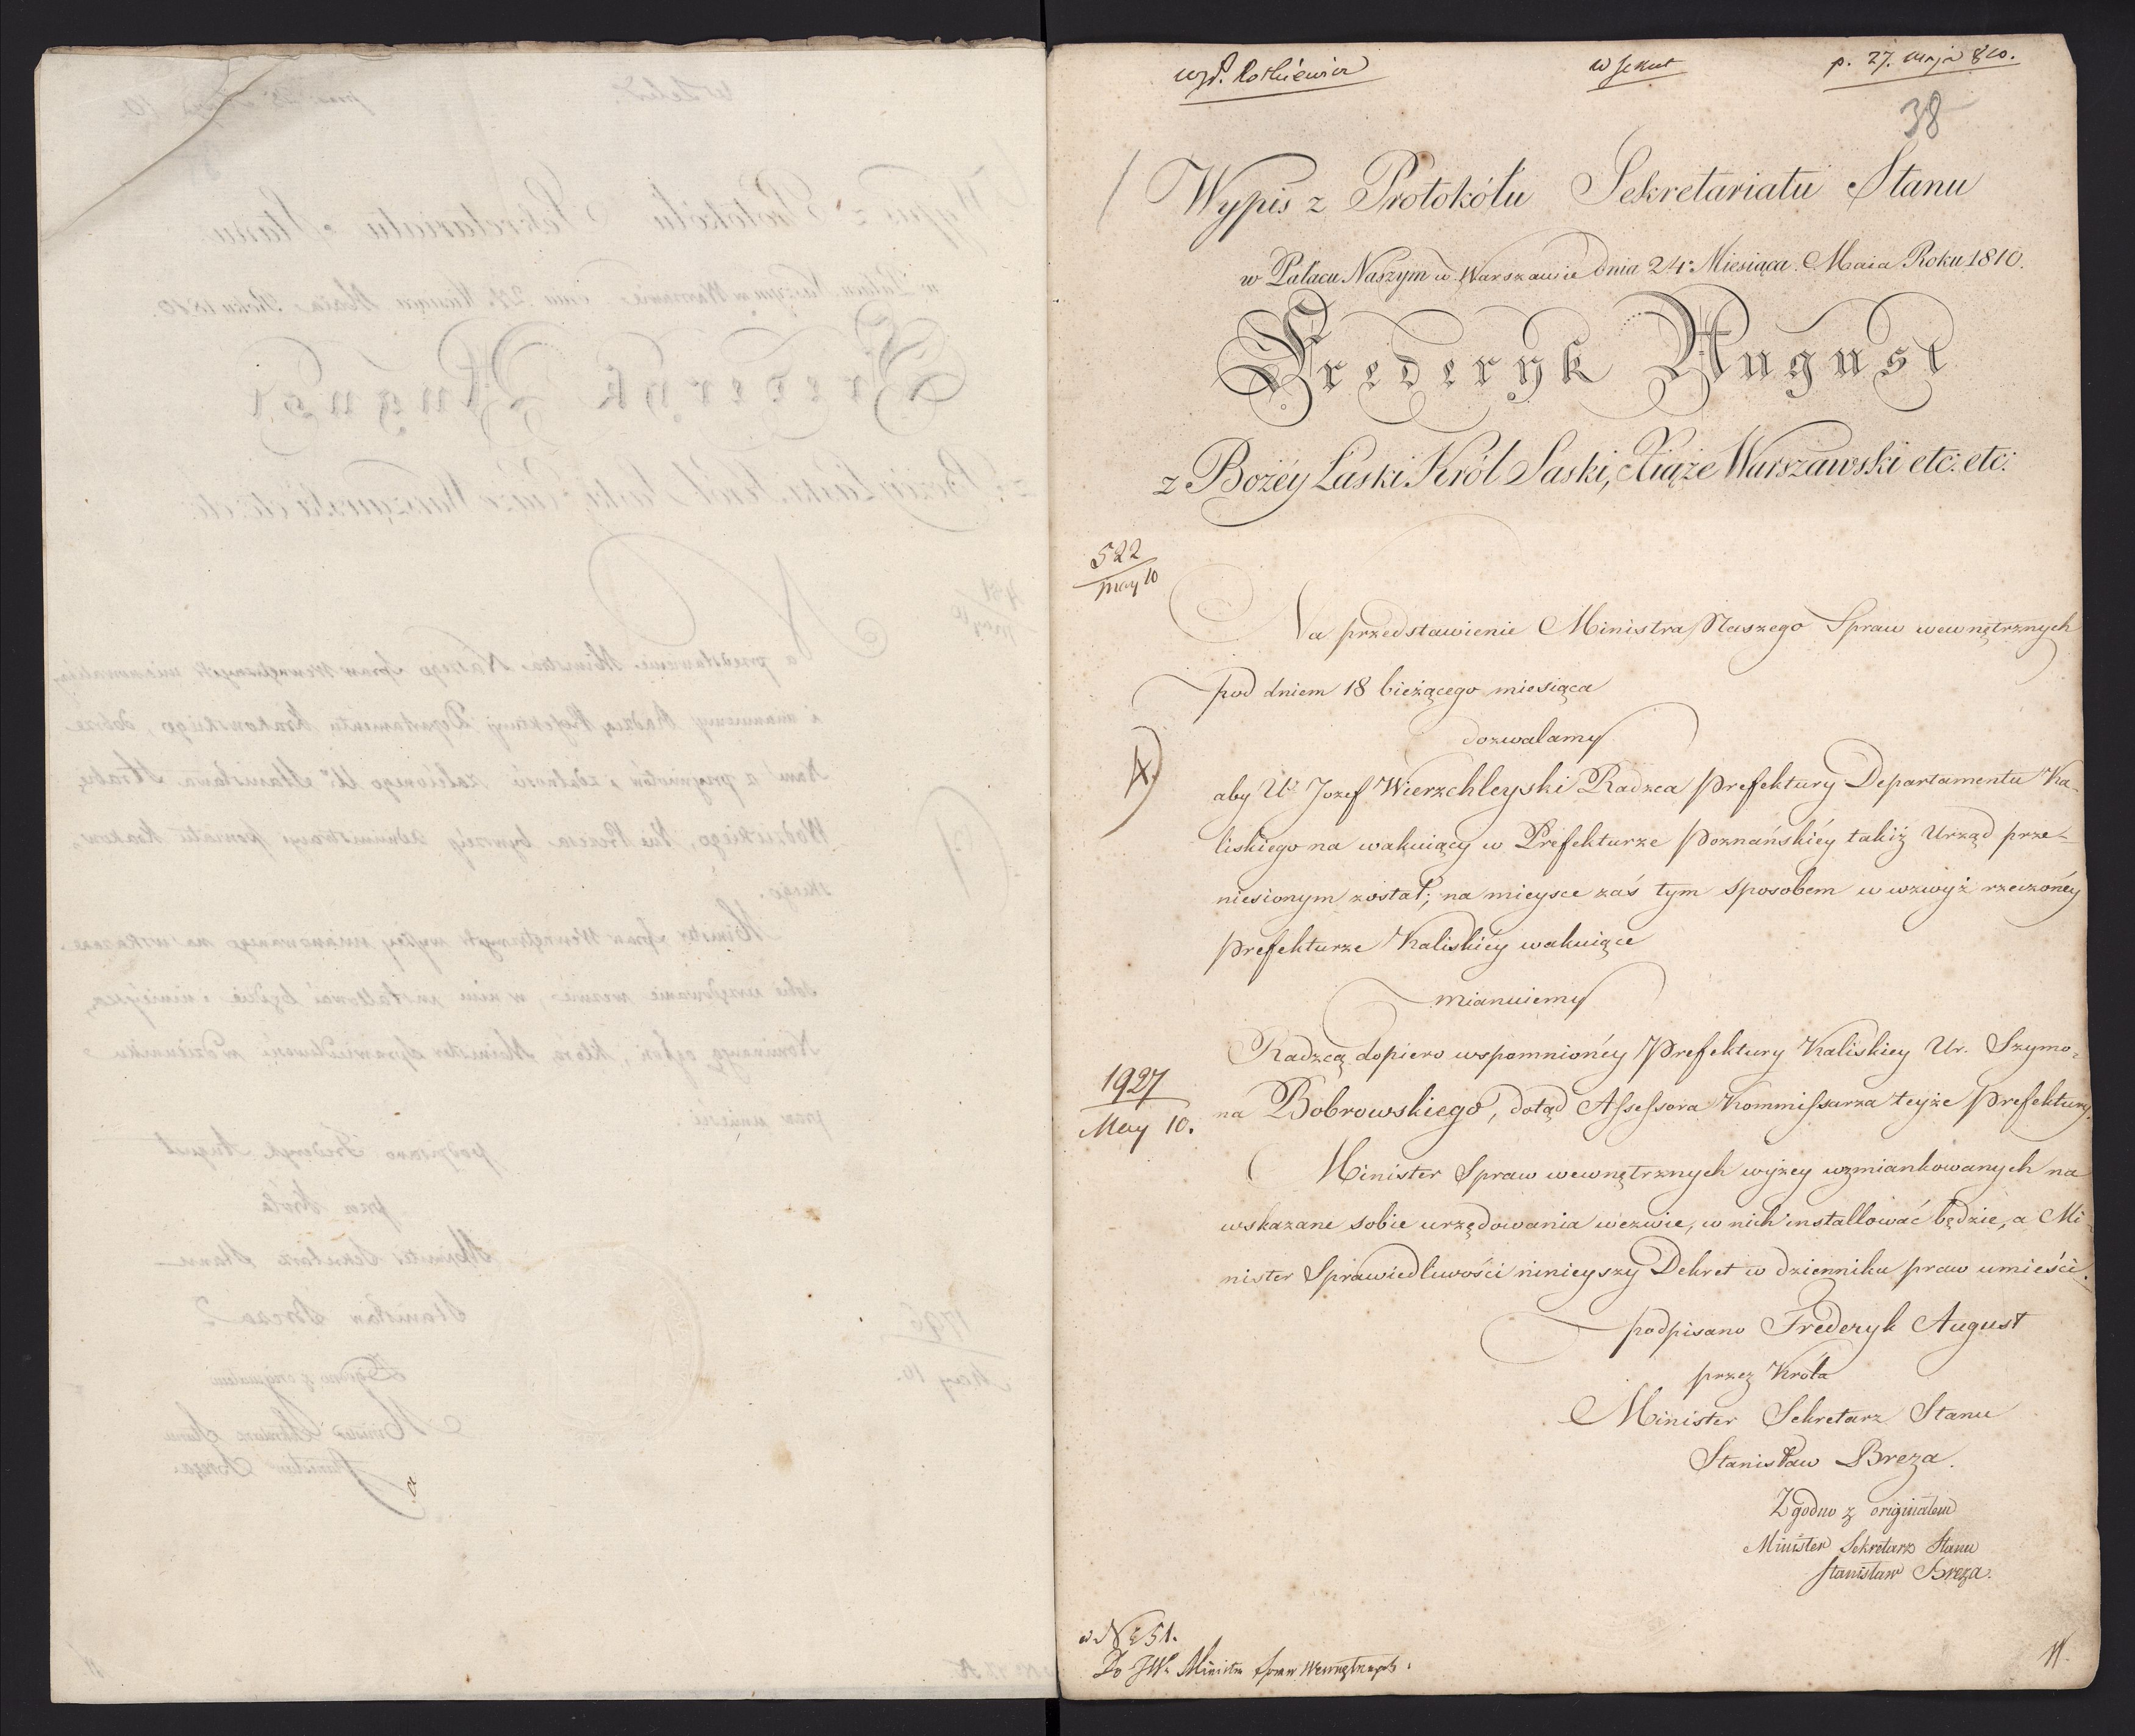 W. Rotkiewicz
w Sekret
p. 27. Maja 810.
38
Wypis z Protokółu Sekretariatu Stanu
w Pałacu Naszym w Warszawie dnia 24. Miesiąca Maia Roku 1810.
Frederyk August
z Bożéy Łaski Król Saski, Xiąże Warszawski etc: etc:
522
May 10
Na przedstawienie Ministra Naszego Spraw wewnętrznych
pod dniem 18 bieżącego miesiąca
dozwalamy
aby Ur Jozef Wierzchleyski Radzca Prefektury Departamentu Ka-
liskiego na wakuiący w Prefekturze Poznańskiéy takiż Urząd prze-
niesionym został; na mieysce zaś tym sposobem w wzwyż rzeczonéy
Prefekturze Kaliskiéy wakuiące
mianuiemy
Radzcą dopiero wspomnionéy Prefektury Kaliskiey Ur. Szymo-
na Bobrowskiego, dotąd Assessora Kommissarza teyże Prefektury.
1927
May 10.
Minister Spraw wewnętrznych wyżey wzmiankowanych na
wskazane sobie urzędowania wezwie, w nich installować będzie, a Mi-
nister Sprawiedliwości ninieyszy Dekret w dzienniku praw umieści.
podpisano Frederyk August
przez Króla
Minister Sekretarz Stanu
Stanisław Breza.
Zgodno z originałem
Minister Sekretarz Stanu
Stanisław Breza.
51.
Do JW. Ministra Spraw Wewnętrznych